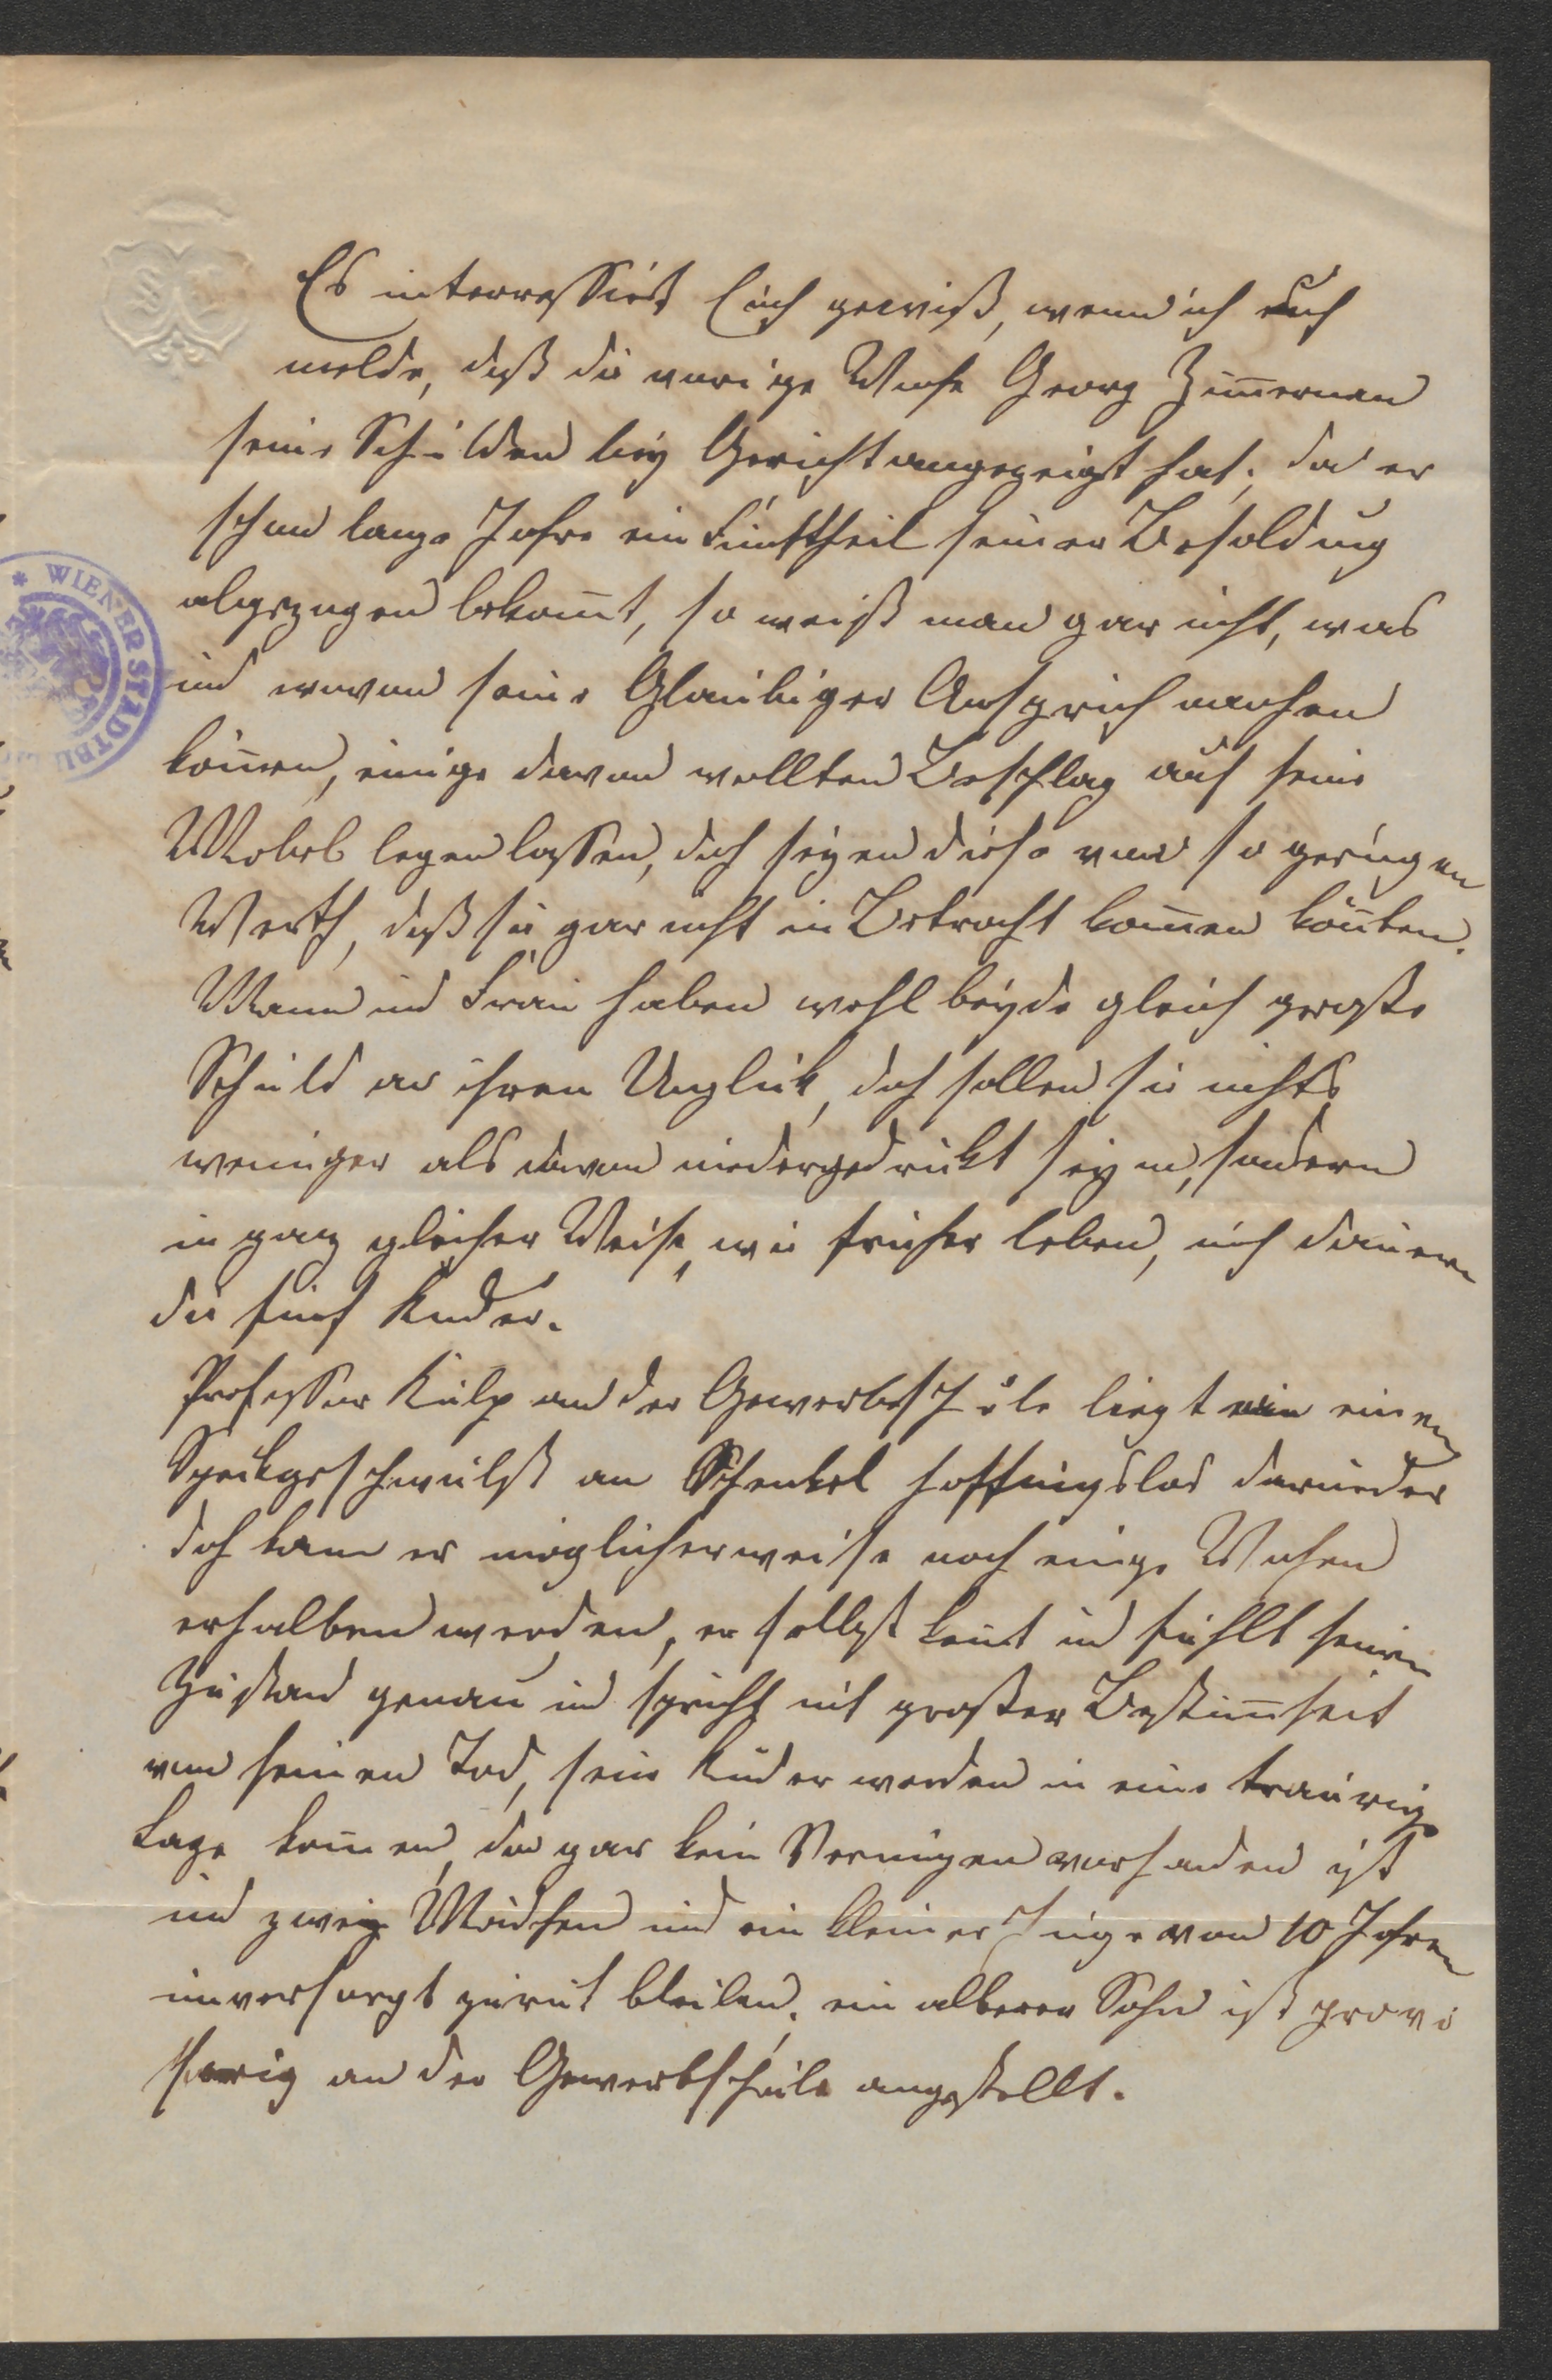 Es interressiert Euch gewiß, wenn ich auch
melde, daß die vorige Woche Georg Zim̅erman
seine Schulden bey Gericht angezeigt hat; da er
schon lange Jahre ein Fünftheil seiner Besoldung
abgezogen bekom̅t, so weiß man gar nicht, was
und wovon seine Glaubiger Anspruch machen
kön̅en, einige davon wollten Beschlag auf seine
Mobel legen lassen, doch seyen diese von so geringen
Werth, daß sie gar nicht in Betracht kom̅en kön̅ten.
Mann und Frau haben wohl beyde gleich große
Schuld an ihren Unglük, doch sollen sie nichts
weniger als davon niedergedrükt seyn, sondern
in ganz gleicher Weise, wie früher leben, mich dauern
die fünf Kinder.
Professor Külp an der Gewerbeschule liegt an einem
Speckgeschwulst am Schenkel hoffnungslos darnieder
doch kann er möglicherweise noch einige Wochen
erhalten werden, er selbst kent und fühlt seinen
Zustand genau und spricht mit großer Bestim̅heit
von seinen Tod, seine Kinder werden in eine traurige
Lage kom̅en, da gar kein Vermögen vorhanden ist
und zwey Mädchen und ein kleiner Junge von 10 Jahren
unversorgt zurük bleiben; ein alterer Sohn ist provi
sorig an der Gewerbschule angestellt.
WIENER STADTBI